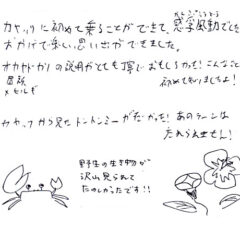 カヤックに初めて乗ることができて、感無量でした
おかげで楽しい思い出ができました。
オカヤドカリの説明がとても丁寧でおもしろかった！こんなこと
初めて知りましたよ！
メヒルギ
カヤックから見たトントンミーがすごかった！あのシーンは
忘れられません！
野生の生き物が
沢山見られて
たのしかったです！！